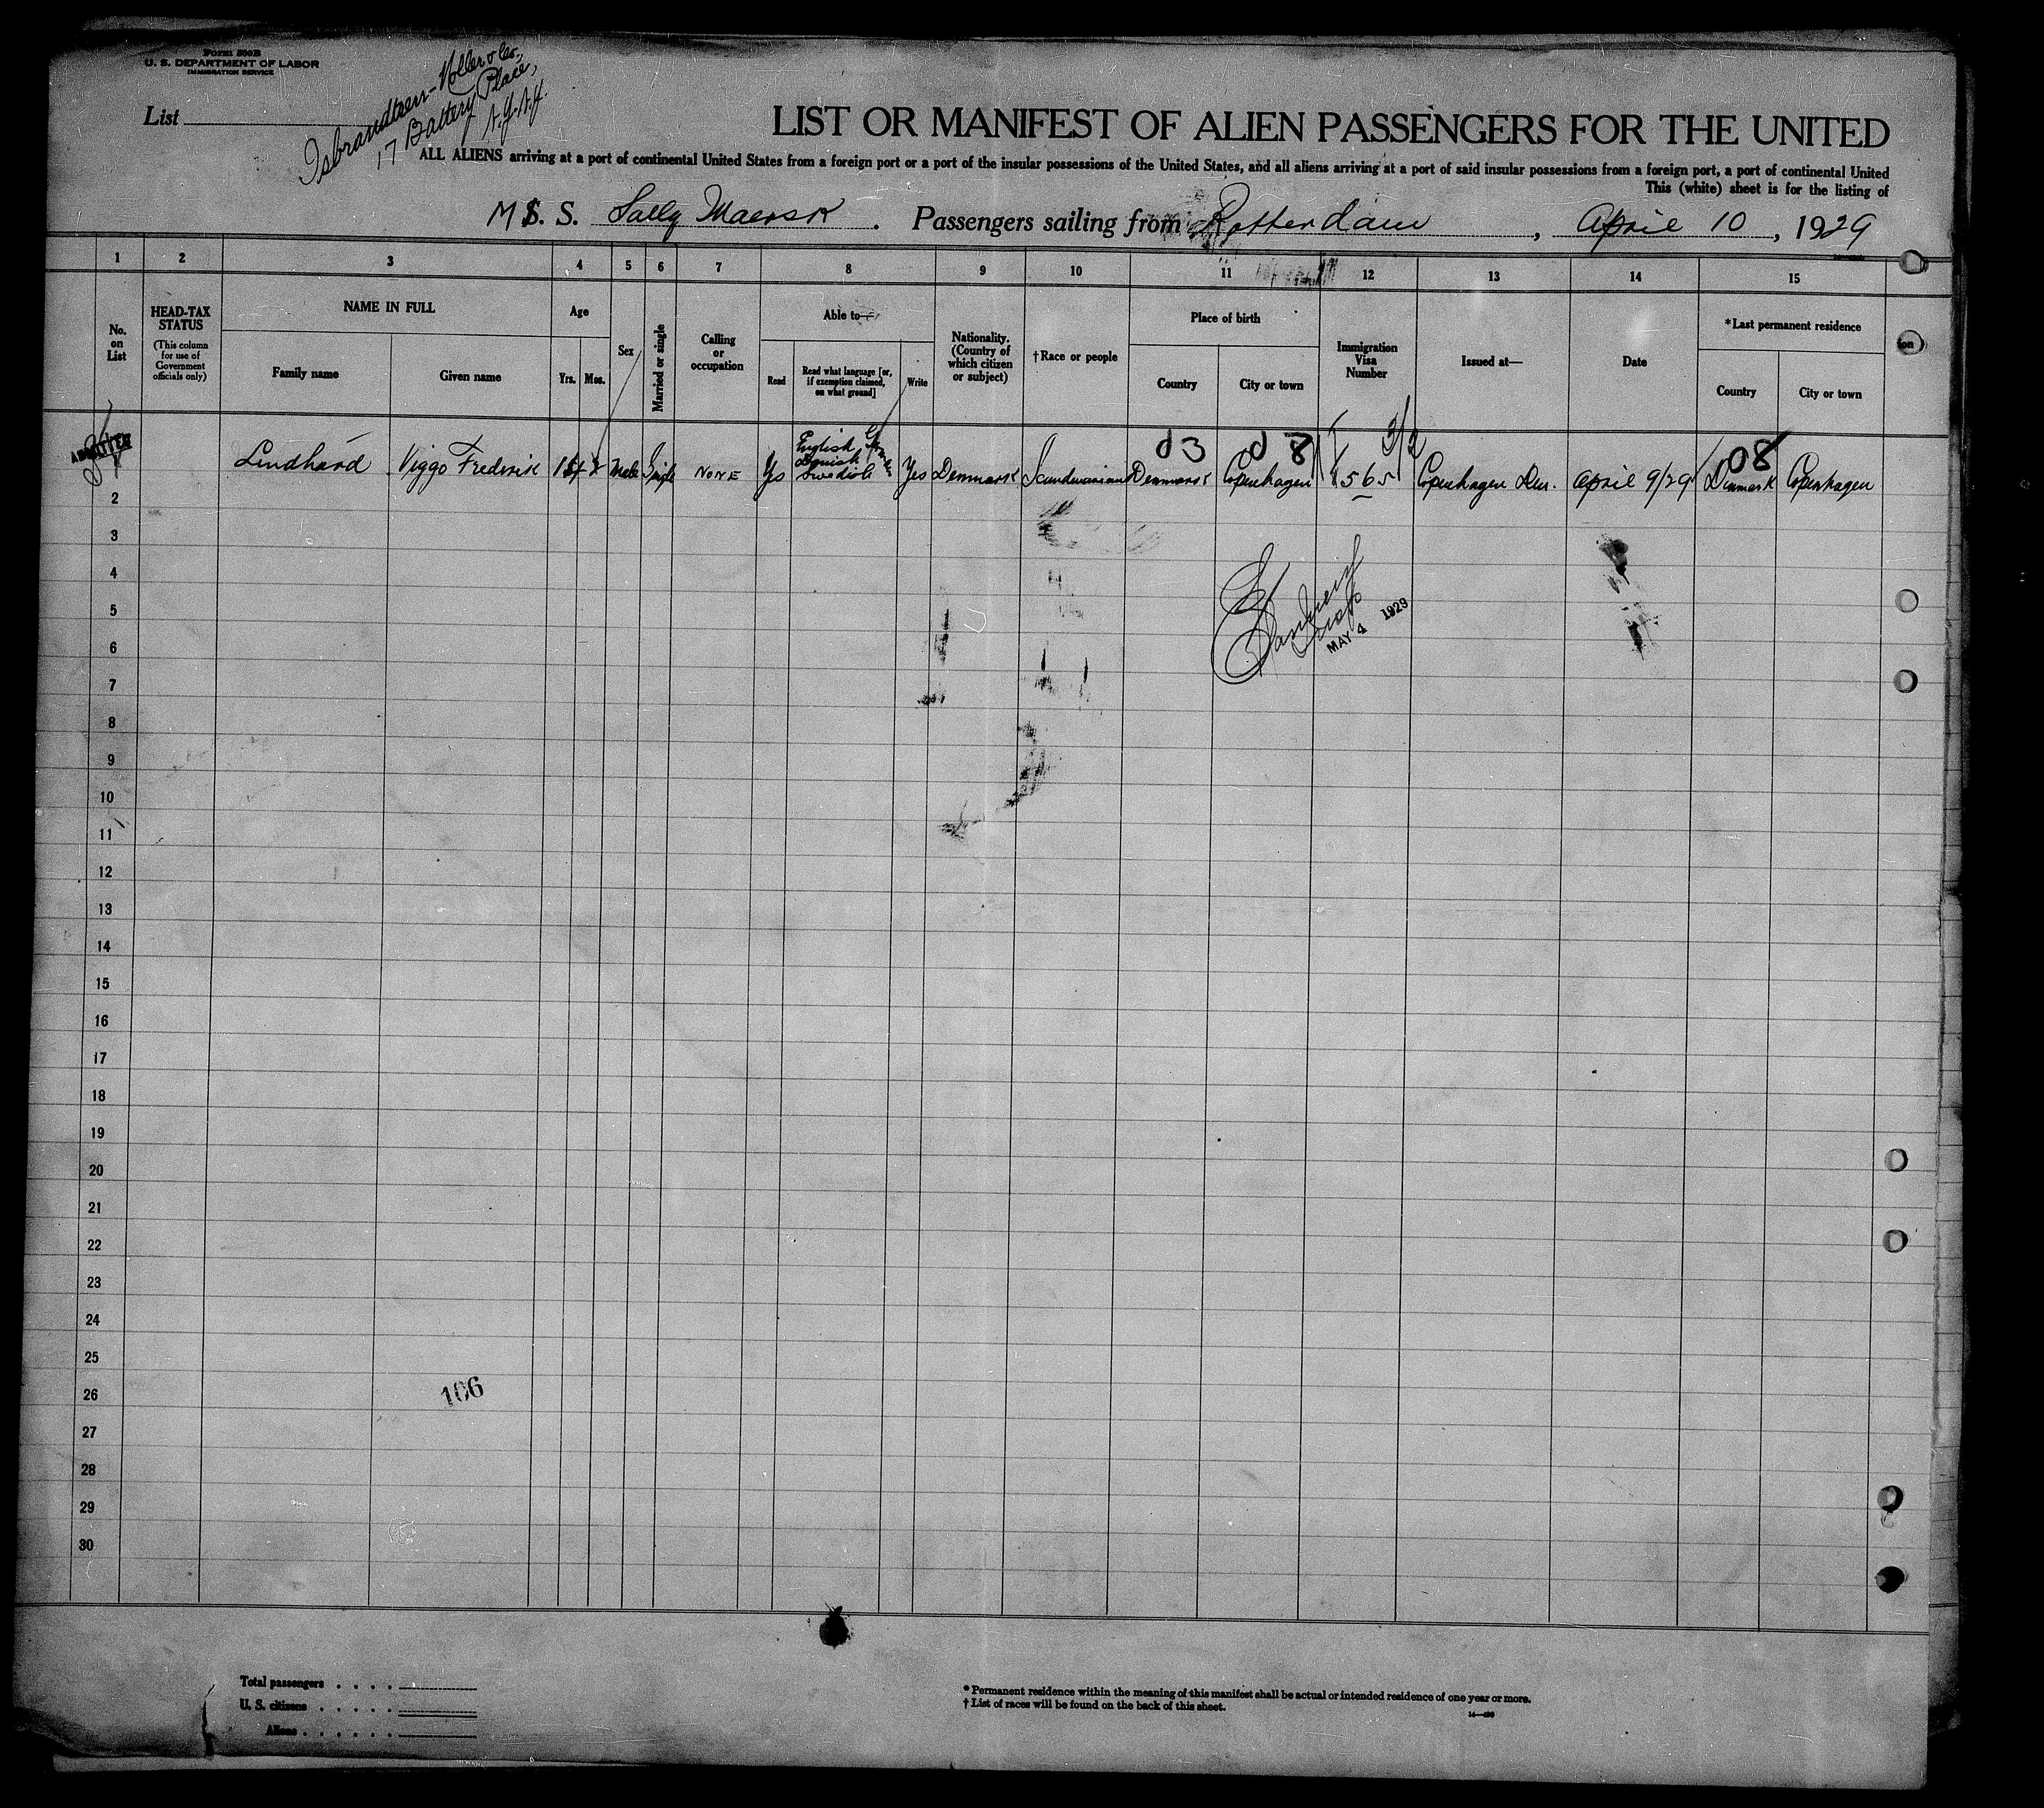 Form 500B
U. S. DEPARTMENT OF LABOR
IMMIGRATION SERVICE
Isbrandtsen-Moller & Co.,
17 Battery Place,
N.Y. N.Y.
List
LIST OR MANIFEST OF ALIEN PASSENGERS FOR THE UNITED
ALL ALIENS arriving at a port of continental United States from a foreign port or a port of the insular possessions of the United States, and all aliens arriving at a port of said insular possessions from a foreign port, a port of continental United
This (white) sheet is for the listing of
M. S. Sally Maersk. Passengers sailing from Rotterdam, April 10, 1929
1 2 3 4 5 6 7 8 9 10 11 12 13 14 15
No. on List
HEAD-TAX STATUS
(This column for use of Government officials only)
NAME IN FULL
Family name
Given name
Age
Yrs.
Mos.
Sex
Married or single
Calling or occupation
Able to—
Read
Read what language [or, if exemption claimed, on what ground]
Write
Nationality. (Country of which citizen or subject)
†Race or people
Place of birth
Country
City or town
Immigration Visa Number
Issued at—
Date
*Last permanent residence
Country
City or town
ADMITTED
03 08 3/2 08
Lindhard Viggo Frederik Male Single NONE Yes English German Danish Swedish Yes Denmark Scandinavian Denmark Copenhagen 1565 Copenhagen Den. April 9/29 Denmark Copenhagen
2
3
4
5
6
7
8
9
10
11
12
13
14
15
16
17
18
19
20
21
22
23
24
25
26
27
28
29
30
MAY 4 1929
106
Total passengers
U. S. citizens
Aliens
* Permanent residence within the meaning of this manifest shall be actual or intended residence of one year or more.
† List of races will be found on the back of this sheet.